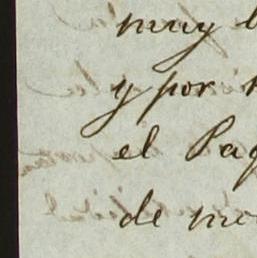 muy
y por
el Pag
de mo